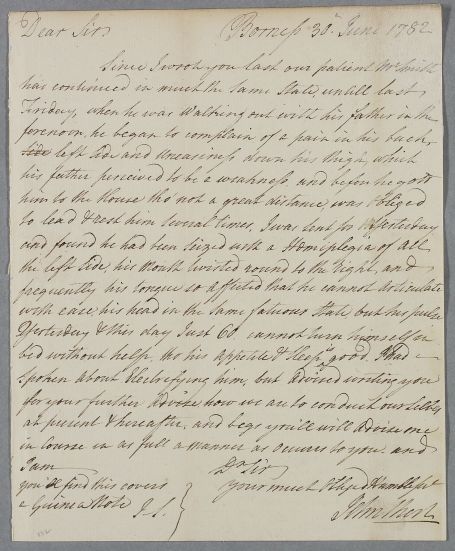 Dear Sir,
Borness 30th June 1782
Since I wrote you last our patient Mr Smith
has continued in much the same State, untill last
Friday, when he was Walking out with his father in the
forenoon, he began to complain of a pain in his back,
left side and Uneasiness down his thigh, which
his father perceived to be a weakness, and before he gott
him to the House tho' not a great distance, was obliged
to lead & rest him Several times, I was sent for Yesterday
and found he had been Seized with a Hemiplegia of All
the left Side, his Mouth twisted round to the Right, and
frequently his tongue so affected that he cannot Articulate
with ease, his head in the same fatuous State but his pulse
Yesterday & this day Just 60, cannot turn himself in
bed without help, tho his appetite & Sleep good. I had
Spoken About Electrefying him, but Advised writing you
for your further Advise how we are to conduct ourselves
at present & hereafter, and begs you'll will Advise me
in Course in as full a manner as occurrs to you. and
I am
Dr Sir
you'll find this covers
your much Obliged Humble Svt
a Guinea Note
J. S.
John